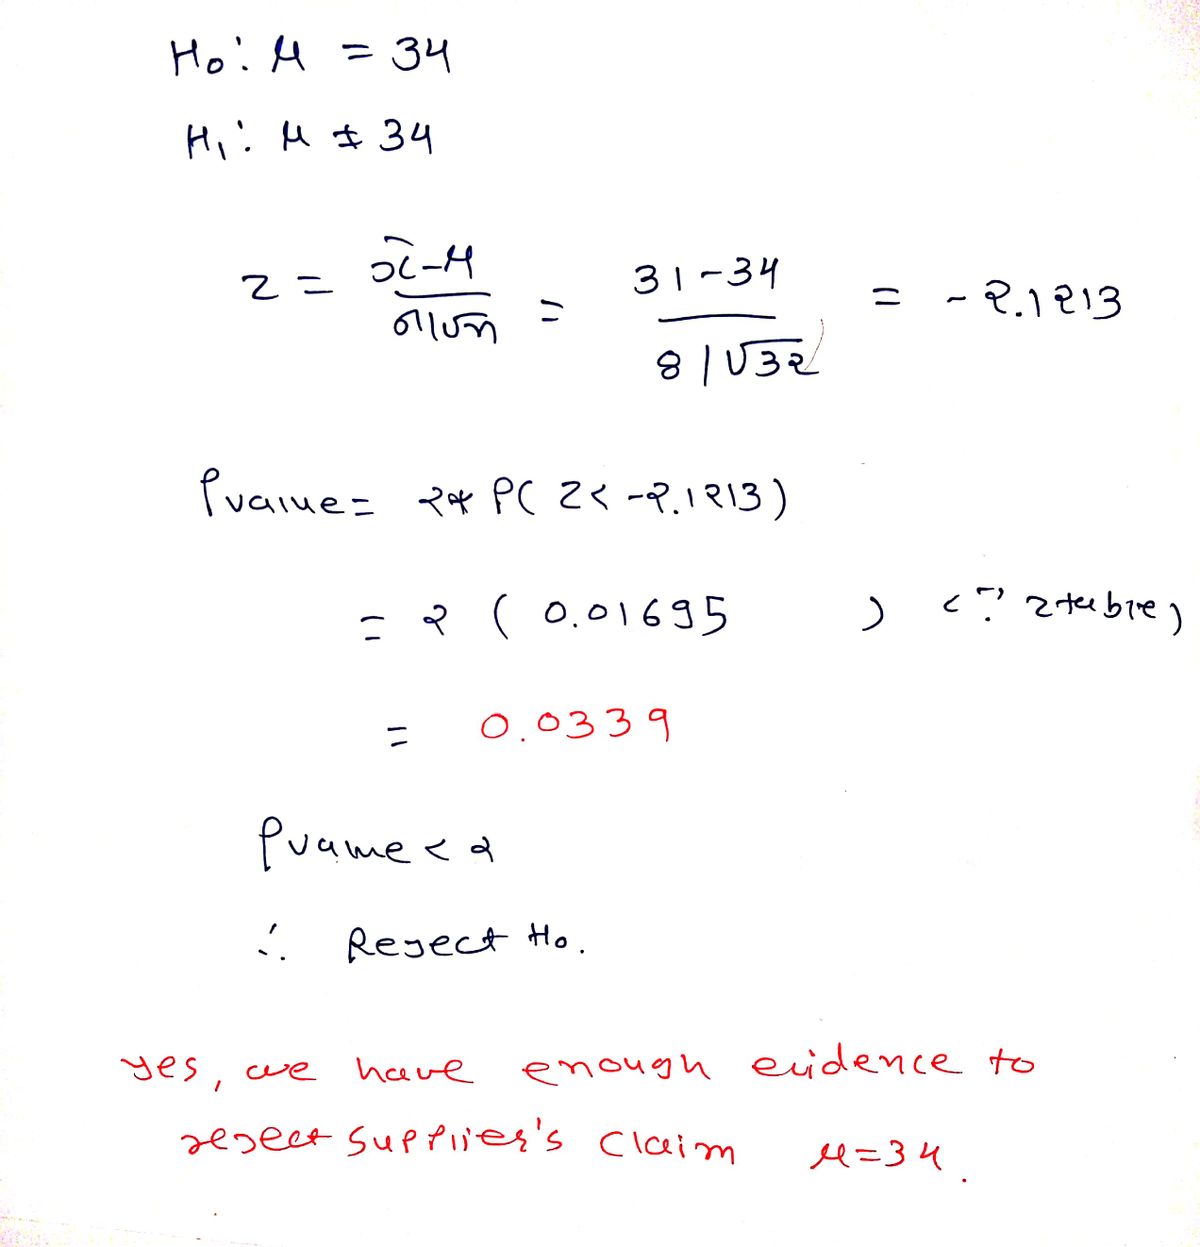 H₀: μ = 34
H₁: μ ≠ 34
z = x̄-μ / σ/√n = 31-34 / 8/√32 = -2.1213
Pvalue = 2* P( Z< -2.1213)
= 2 ( 0.01695 ) (∵ z table)
= 0.0339
Pvalue < α
∴ Reject H₀.
yes, we have enough evidence to
reject supplier's claim μ=34.